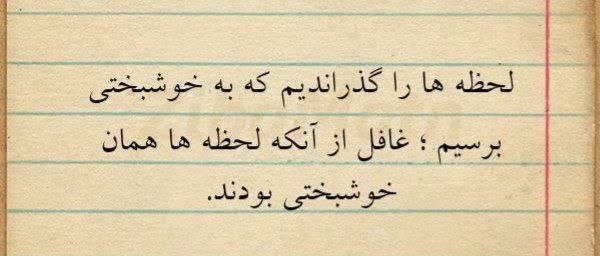 لحظه ها را گذراندیم که به خوشبختی
برسیم ؛ غافل از آنکه لحظه ها همان
خوشبختی بودند.